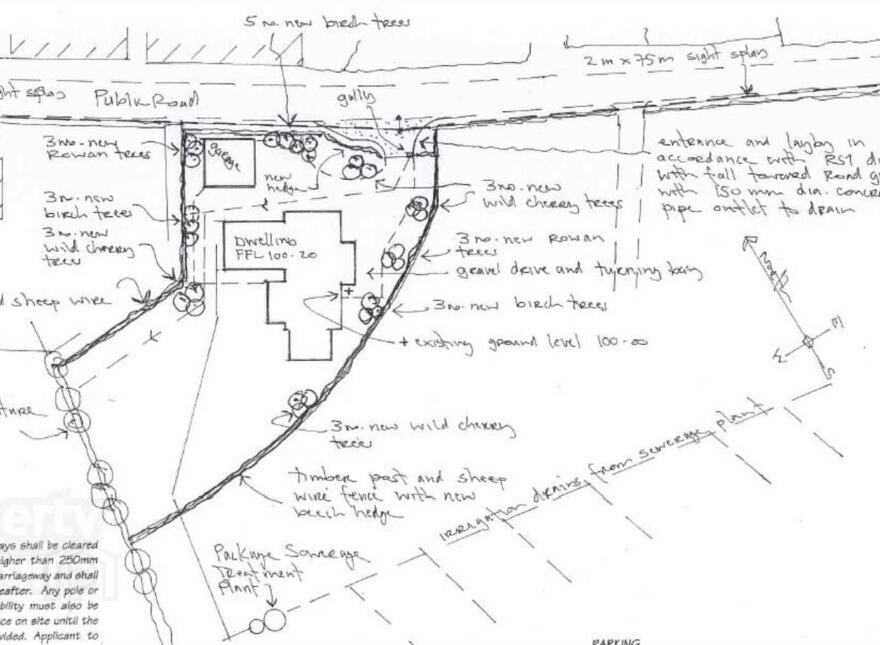 5 no. new birch trees
2m x 75m sight splay
sight splay
Public Road
gully
3 no. new
Rowan trees
Garage
new
hedge
entrance and layby in
accordance with RS1
with fall toward Road
with 150 mm dia.
pipe outlet to drain
3 no. new
wild cherry trees
3 no. new
birch trees
3 no. new
wild cherry
tree
Dwelling
FFL 100.20
3 no. new Rowan
trees
gravel drive and turning bay
North
E
W
S
sheep wire
3 no. new birch trees
+ existing ground level 100.00
3 no. new wild cherry
trees
timber post and sheep
wire fence with new
beech hedge
irrigation drains from sewerage plant
Package Sewerage
Treatment
Plant
ays shall be cleared
igher than 250mm
arriageway and shall
eafter. Any pole or
ibility must also be
ce on site unitil the
vided. Applicant to
PARKING